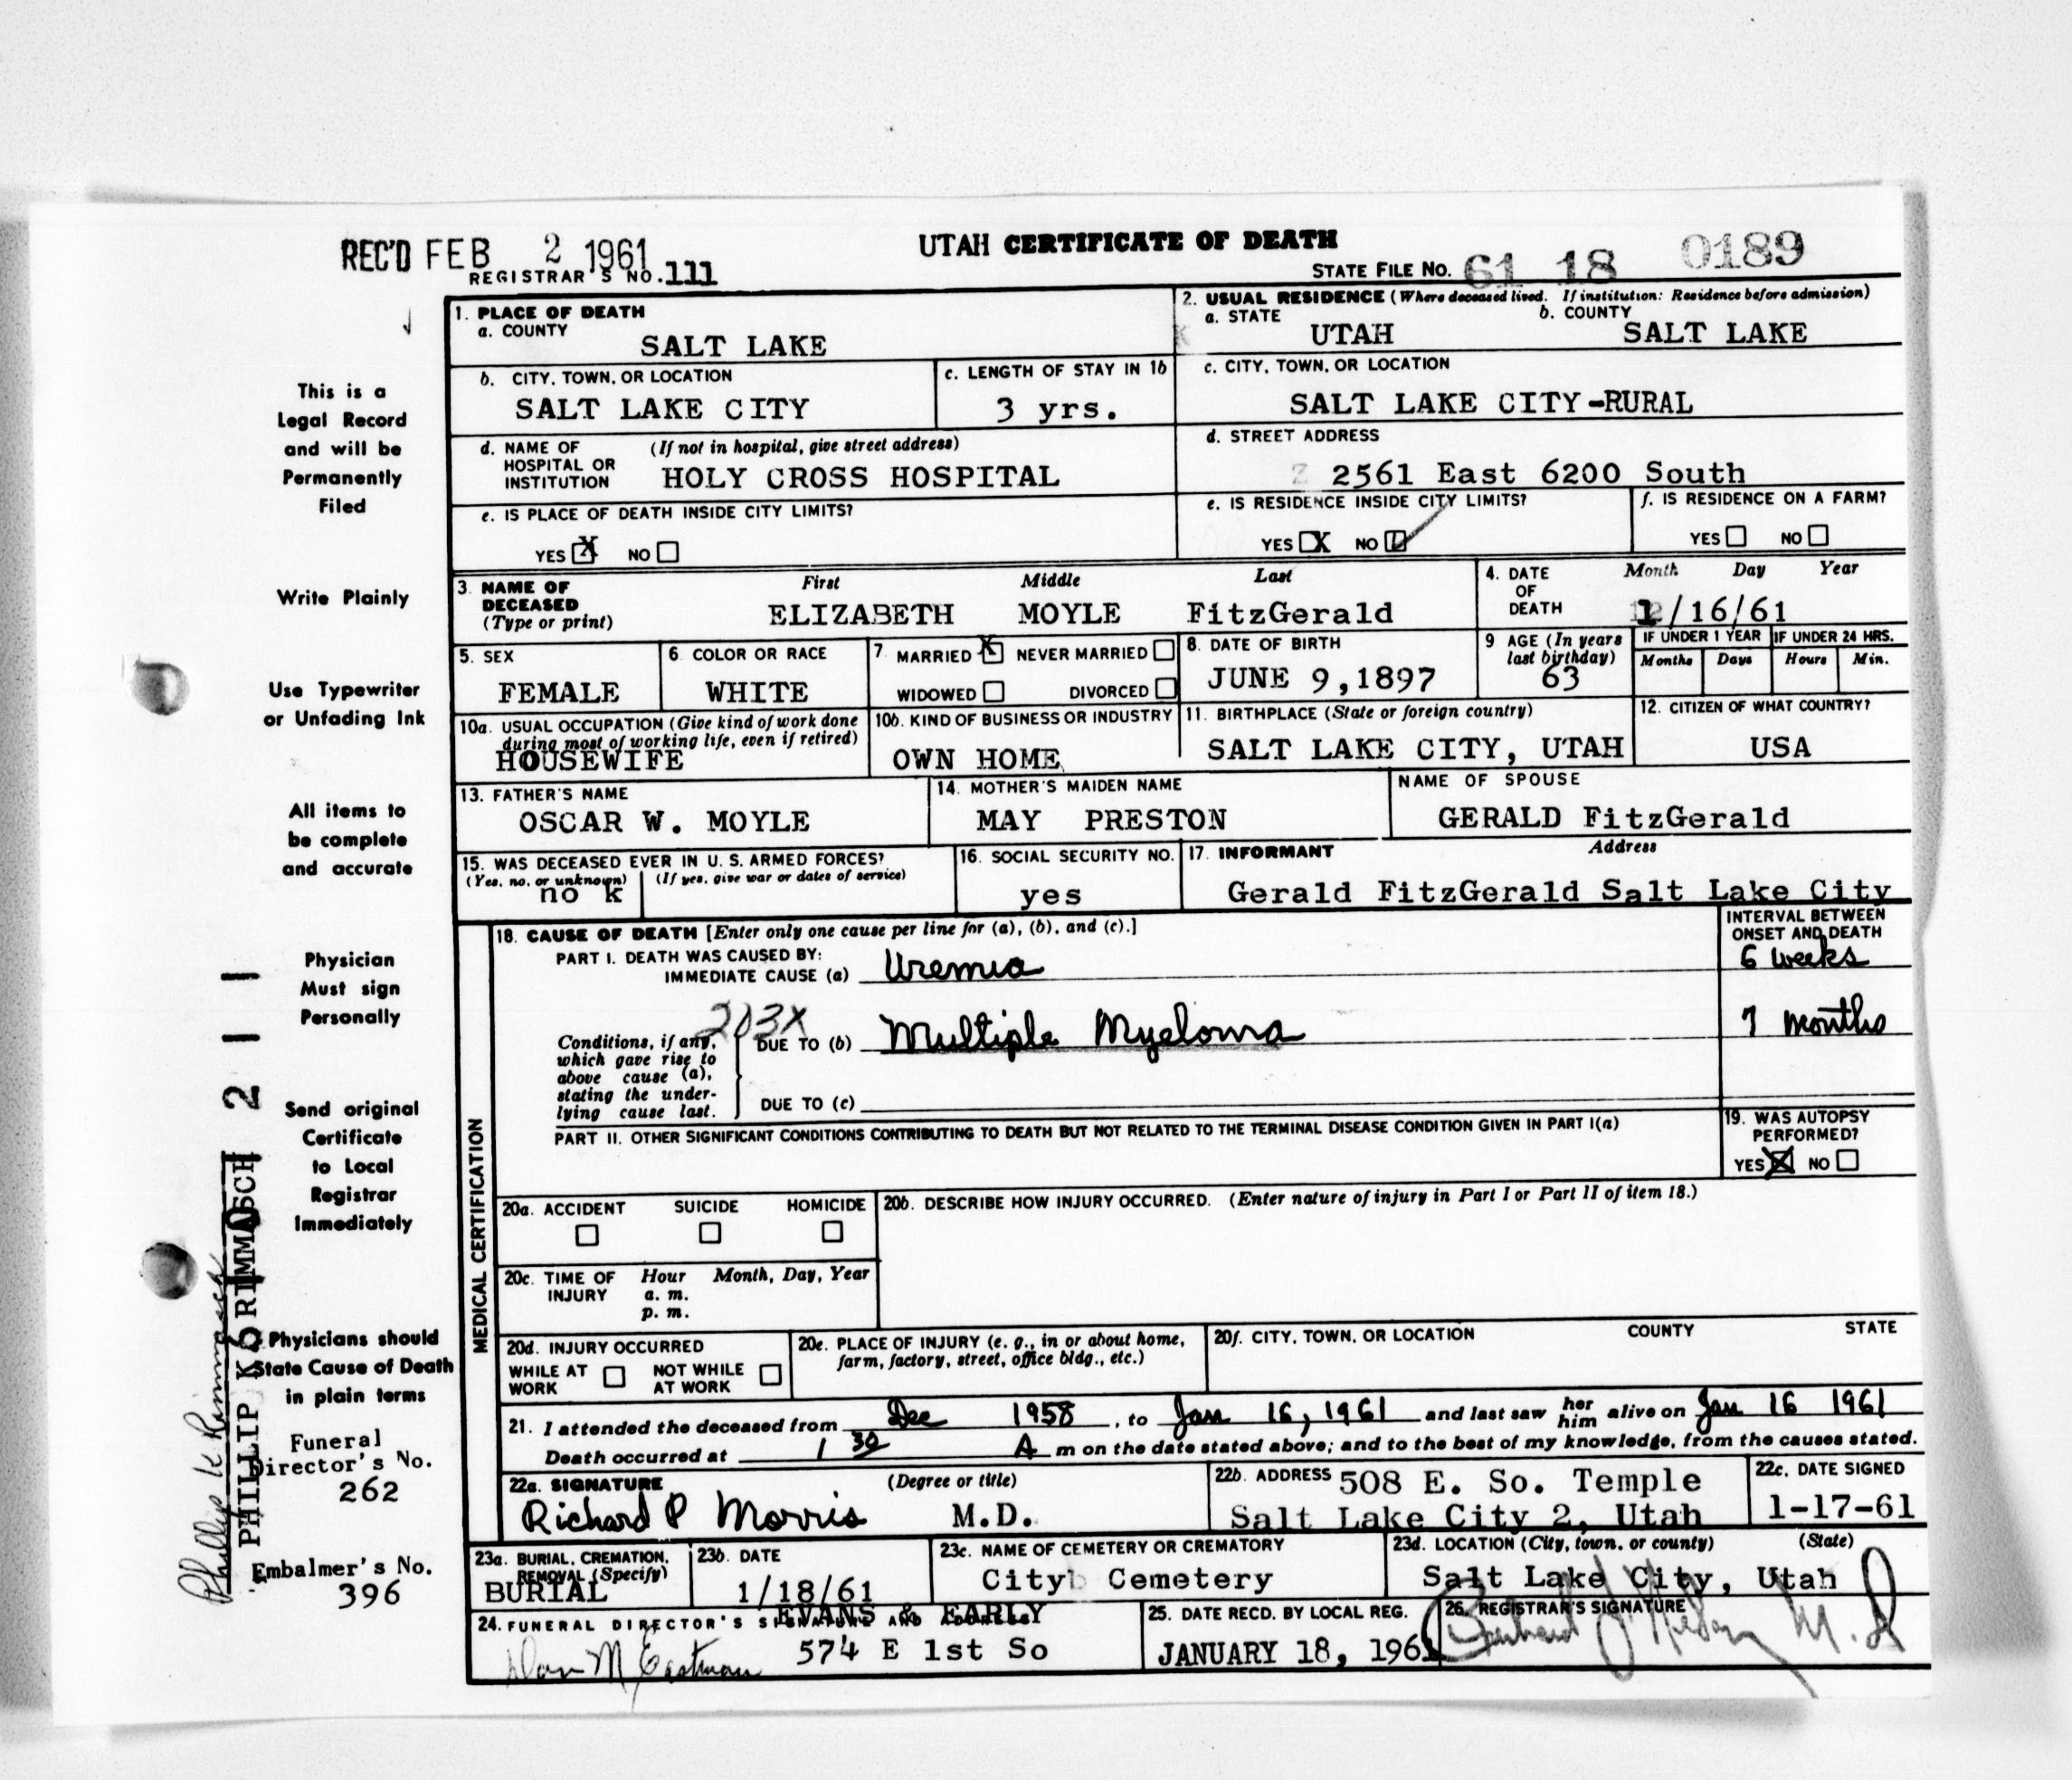 REC'D FEB 2 1961
REGISTRAR'S NO. 111
UTAH CERTIFICATE OF DEATH
STATE FILE NO. 61 18 0189
This is a
Legal Record
and will be
Permanently
Filed
Write Plainly
Use Typewriter
or Unfading Ink
All items to
be complete
and accurate
Physician
Must sign
Personally
Send original
Certificate
to Local
Registrar
Immediately
Physicians should
State Cause of Death
in plain terms
Funeral
Director's No.
262
Embalmer's No.
396
1. PLACE OF DEATH
a. COUNTY
SALT LAKE
2. USUAL RESIDENCE (Where deceased lived. If institution: Residence before admission)
a. STATE
UTAH
b. COUNTY
SALT LAKE
b. CITY, TOWN, OR LOCATION
SALT LAKE CITY
c. LENGTH OF STAY IN 1b
3 yrs.
c. CITY, TOWN, OR LOCATION
SALT LAKE CITY-RURAL
d. NAME OF HOSPITAL OR INSTITUTION
(If not in hospital, give street address)
HOLY CROSS HOSPITAL
d. STREET ADDRESS
2561 East 6200 South
e. IS PLACE OF DEATH INSIDE CITY LIMITS?
YES X NO
e. IS RESIDENCE INSIDE CITY LIMITS?
YES X NO
f. IS RESIDENCE ON A FARM?
YES NO
3. NAME OF DECEASED (Type or print)
First Middle Last
ELIZABETH MOYLE FitzGerald
4. DATE OF DEATH
Month Day Year
1/16/61
5. SEX
FEMALE
6. COLOR OR RACE
WHITE
7. MARRIED X NEVER MARRIED
WIDOWED DIVORCED
8. DATE OF BIRTH
JUNE 9,1897
9 AGE (In years last birthday)
63
IF UNDER 1 YEAR
Months Days
IF UNDER 24 HRS.
Hours Min.
10a. USUAL OCCUPATION (Give kind of work done during most of working life, even if retired)
HOUSEWIFE
10b. KIND OF BUSINESS OR INDUSTRY
OWN HOME
11. BIRTHPLACE (State or foreign country)
SALT LAKE CITY, UTAH
12. CITIZEN OF WHAT COUNTRY?
USA
13. FATHER'S NAME
OSCAR W. MOYLE
14. MOTHER'S MAIDEN NAME
MAY PRESTON
NAME OF SPOUSE
GERALD FitzGerald
15. WAS DECEASED EVER IN U. S. ARMED FORCES?
(Yes, no, or unknown) (If yes, give war or dates of service)
no k
16. SOCIAL SECURITY NO.
yes
17. INFORMANT Address
Gerald FitzGerald Salt Lake City
MEDICAL CERTIFICATION
18. CAUSE OF DEATH [Enter only one cause per line for (a), (b), and (c).]
INTERVAL BETWEEN ONSET AND DEATH
PART I. DEATH WAS CAUSED BY:
IMMEDIATE CAUSE (a) Uremia
6 weeks
203X
Conditions, if any, which gave rise to above cause (a), stating the underlying cause last.
DUE TO (b) Multiple Myeloma
7 months
DUE TO (c)
PART II. OTHER SIGNIFICANT CONDITIONS CONTRIBUTING TO DEATH BUT NOT RELATED TO THE TERMINAL DISEASE CONDITION GIVEN IN PART I(a)
19. WAS AUTOPSY PERFORMED?
YES X NO
20a. ACCIDENT SUICIDE HOMICIDE
20b. DESCRIBE HOW INJURY OCCURRED. (Enter nature of injury in Part I or Part II of item 18.)
20c. TIME OF INJURY
Hour Month, Day, Year
a. m.
p. m.
20d. INJURY OCCURRED
WHILE AT WORK NOT WHILE AT WORK
20e. PLACE OF INJURY (e. g., in or about home, farm, factory, street, office bldg., etc.)
20f. CITY, TOWN, OR LOCATION COUNTY STATE
21. I attended the deceased from Dec 1958, to Jan 16, 1961 and last saw her him alive on Jan 16 1961
Death occurred at 1 30 A m on the date stated above; and to the best of my knowledge, from the causes stated.
22a. SIGNATURE (Degree or title)
Richard P Morris M.D.
22b. ADDRESS 508 E. So. Temple
Salt Lake City 2, Utah
22c. DATE SIGNED
1-17-61
23a. BURIAL, CREMATION, REMOVAL (Specify)
BURIAL
23b. DATE
1/18/61
23c. NAME OF CEMETERY OR CREMATORY
City Cemetery
23d. LOCATION (City, town, or county) (State)
Salt Lake City, Utah
24. FUNERAL DIRECTOR'S SIGNATURE AND ADDRESS
EVANS & EARLY
574 E 1st So
Don M Eastman
25. DATE RECD. BY LOCAL REG.
JANUARY 18, 1961
26. REGISTRAR'S SIGNATURE
M.D